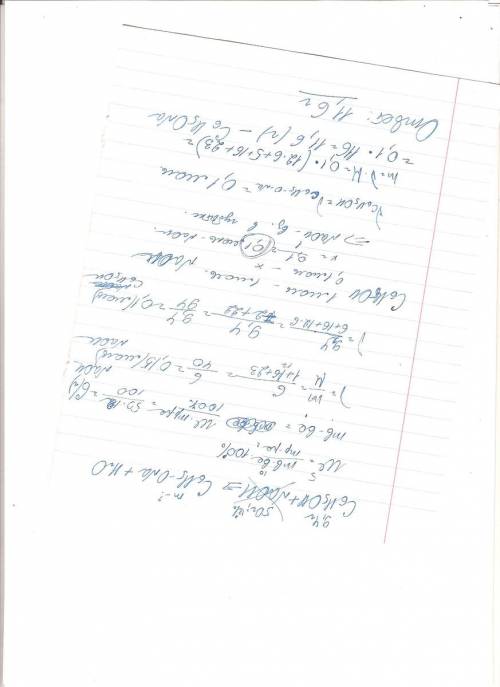 9,4г 50г, 12% m-?
C6H5OH + NaOH → C6H5-ONa + H2O
W = mв-ва · 100% / mр-ра ;
mв-ва = W · mр-ра / 100% = 50 · 12 / 100 = 6(г)
ν = m / M = 6 / 1+16+23 = 6 / 40 = 0,15(моль) NaOH
ν = 9,4 / 6+16+12·6 = 9,4 / 94 = 0,1(моль) C6H5OH
C6H5OH 1 моль - 1 моль NaOH
0,1 моль - x
x = 0,1 моль - NaOH
⇒ NaOH - в избытке.
νC6H5OH = νC6H5-ONa = 0,1 моль
m = ν · M = 0,1 · (12·6+5+16+23) =
= 0,1 · 116 = 11,6 (г) - C6H5ONa
Ответ: 11,6 г